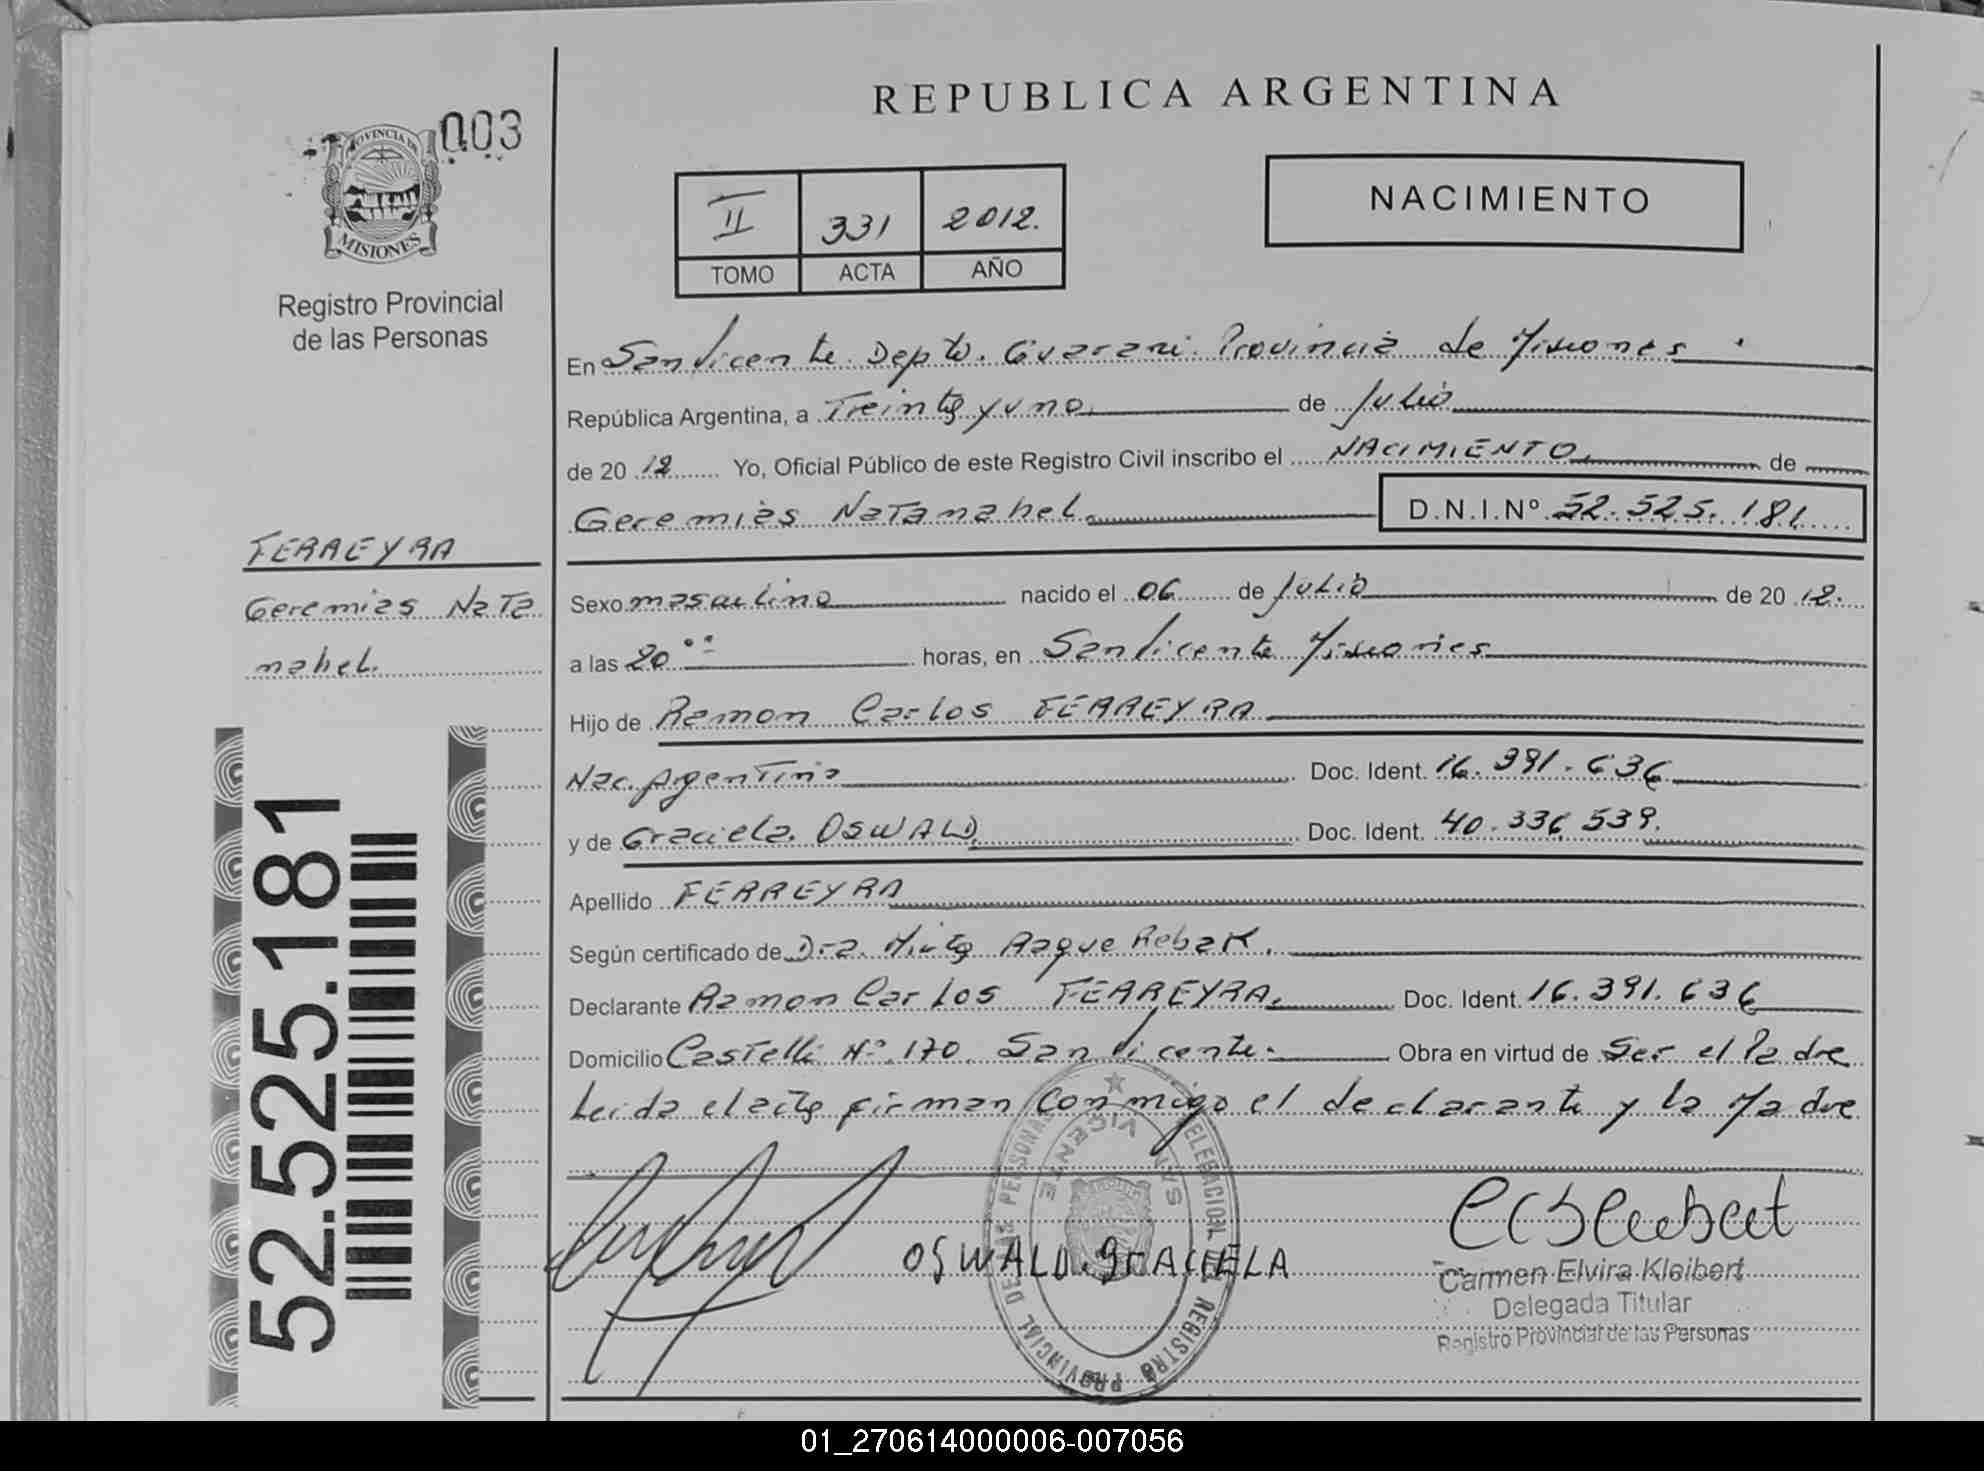 REPUBLICA ARGENTINA
003
PROVINCIA DE
MISIONES
Registro Provincial
de las Personas
II 331 2012.
TOMO ACTA AÑO
NACIMIENTO
En San Vicente. Depto. Guarani. Provincia de Misiones
República Argentina, a Treinta y uno de Julio
de 20 12 Yo, Oficial Público de este Registro Civil inscribo el NACIMIENTO de
Geremias Natanahel D.N.I.Nº 52.525.181
FERREYRA
Geremias Nata
nahel.
Sexo masculino nacido el 06 de Julio de 20 12.
a las 20 °° horas, en San Vicente Misiones
Hijo de Ramon Carlos FERREYRA
Nac. Argentina Doc. Ident. 16.391.636
y de Graciela. OSWALD Doc. Ident. 40.336.539.
Apellido FERREYRA
Según certificado de Dra. Mirta Raque Rebak.
Declarante Ramon Carlos FERREYRA. Doc. Ident. 16.391.636
Domicilio Castelli Nº 170 San Vicente. Obra en virtud de Ser el Padre
Leida el acta firman conmigo el declarante y la Madre
52.525.181
OSWALD. GRACIELA
REGISTRO PROVINCIAL DE LAS PERSONAS
DELEGACION
SAN VICENTE
Carmen Elvira Kleibert
Delegada Titular
Registro Provincial de las Personas
01_270614000006-007056